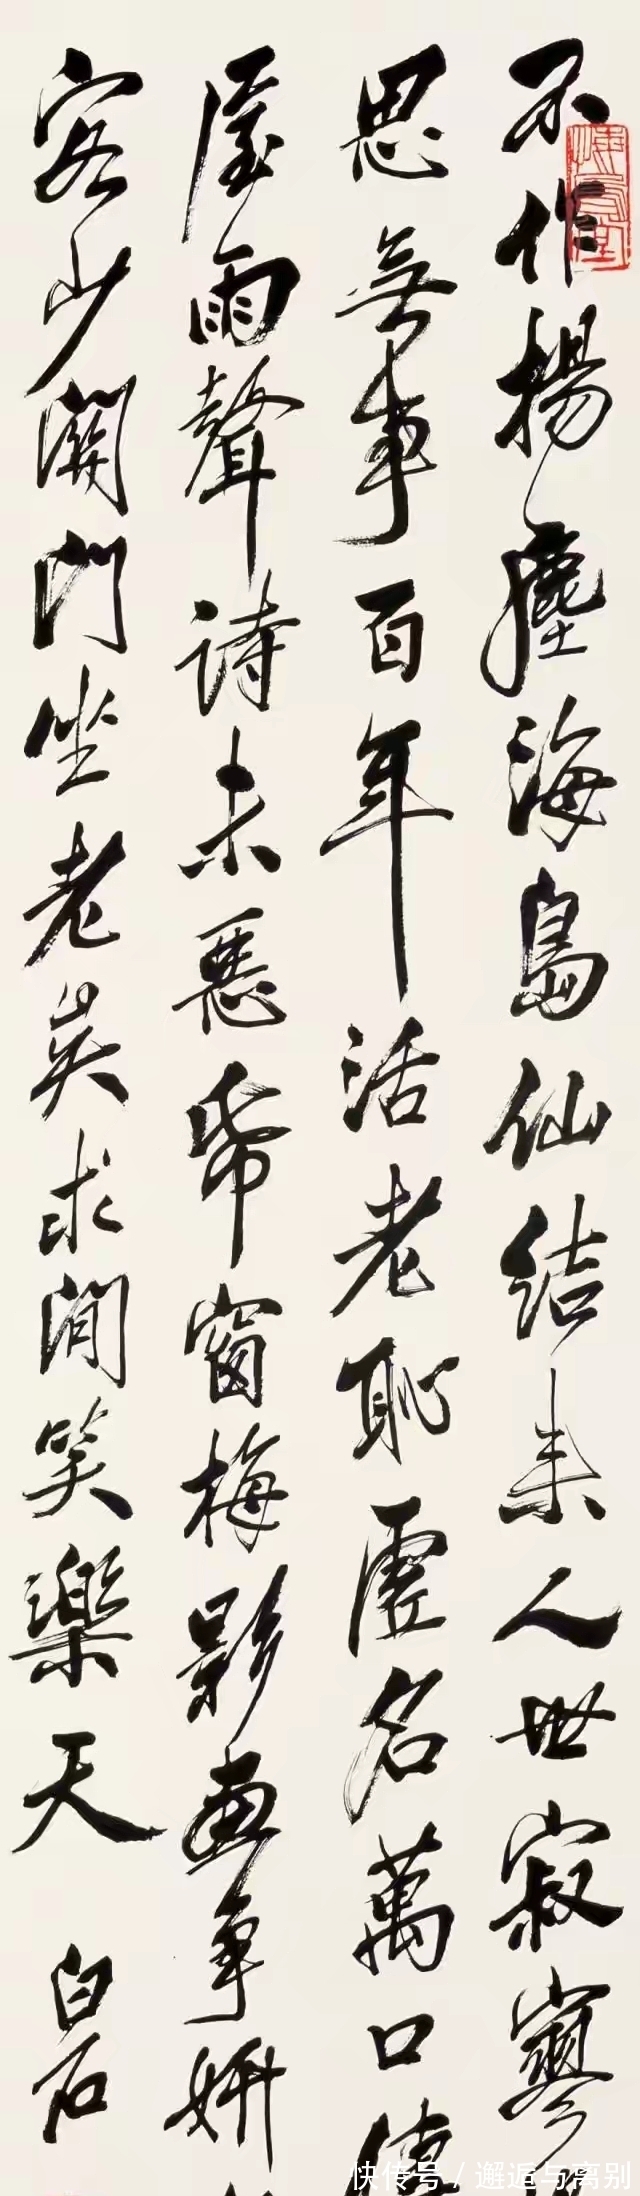 不作揚塵海島仙結来人世寂寥
思無事百年活老耻虛名萬口傳
屋雨聲詩未惡帋窗梅影畫事妍
客少關門坐老矣求閒笑樂天 白石
快传号 / 邂逅与离别